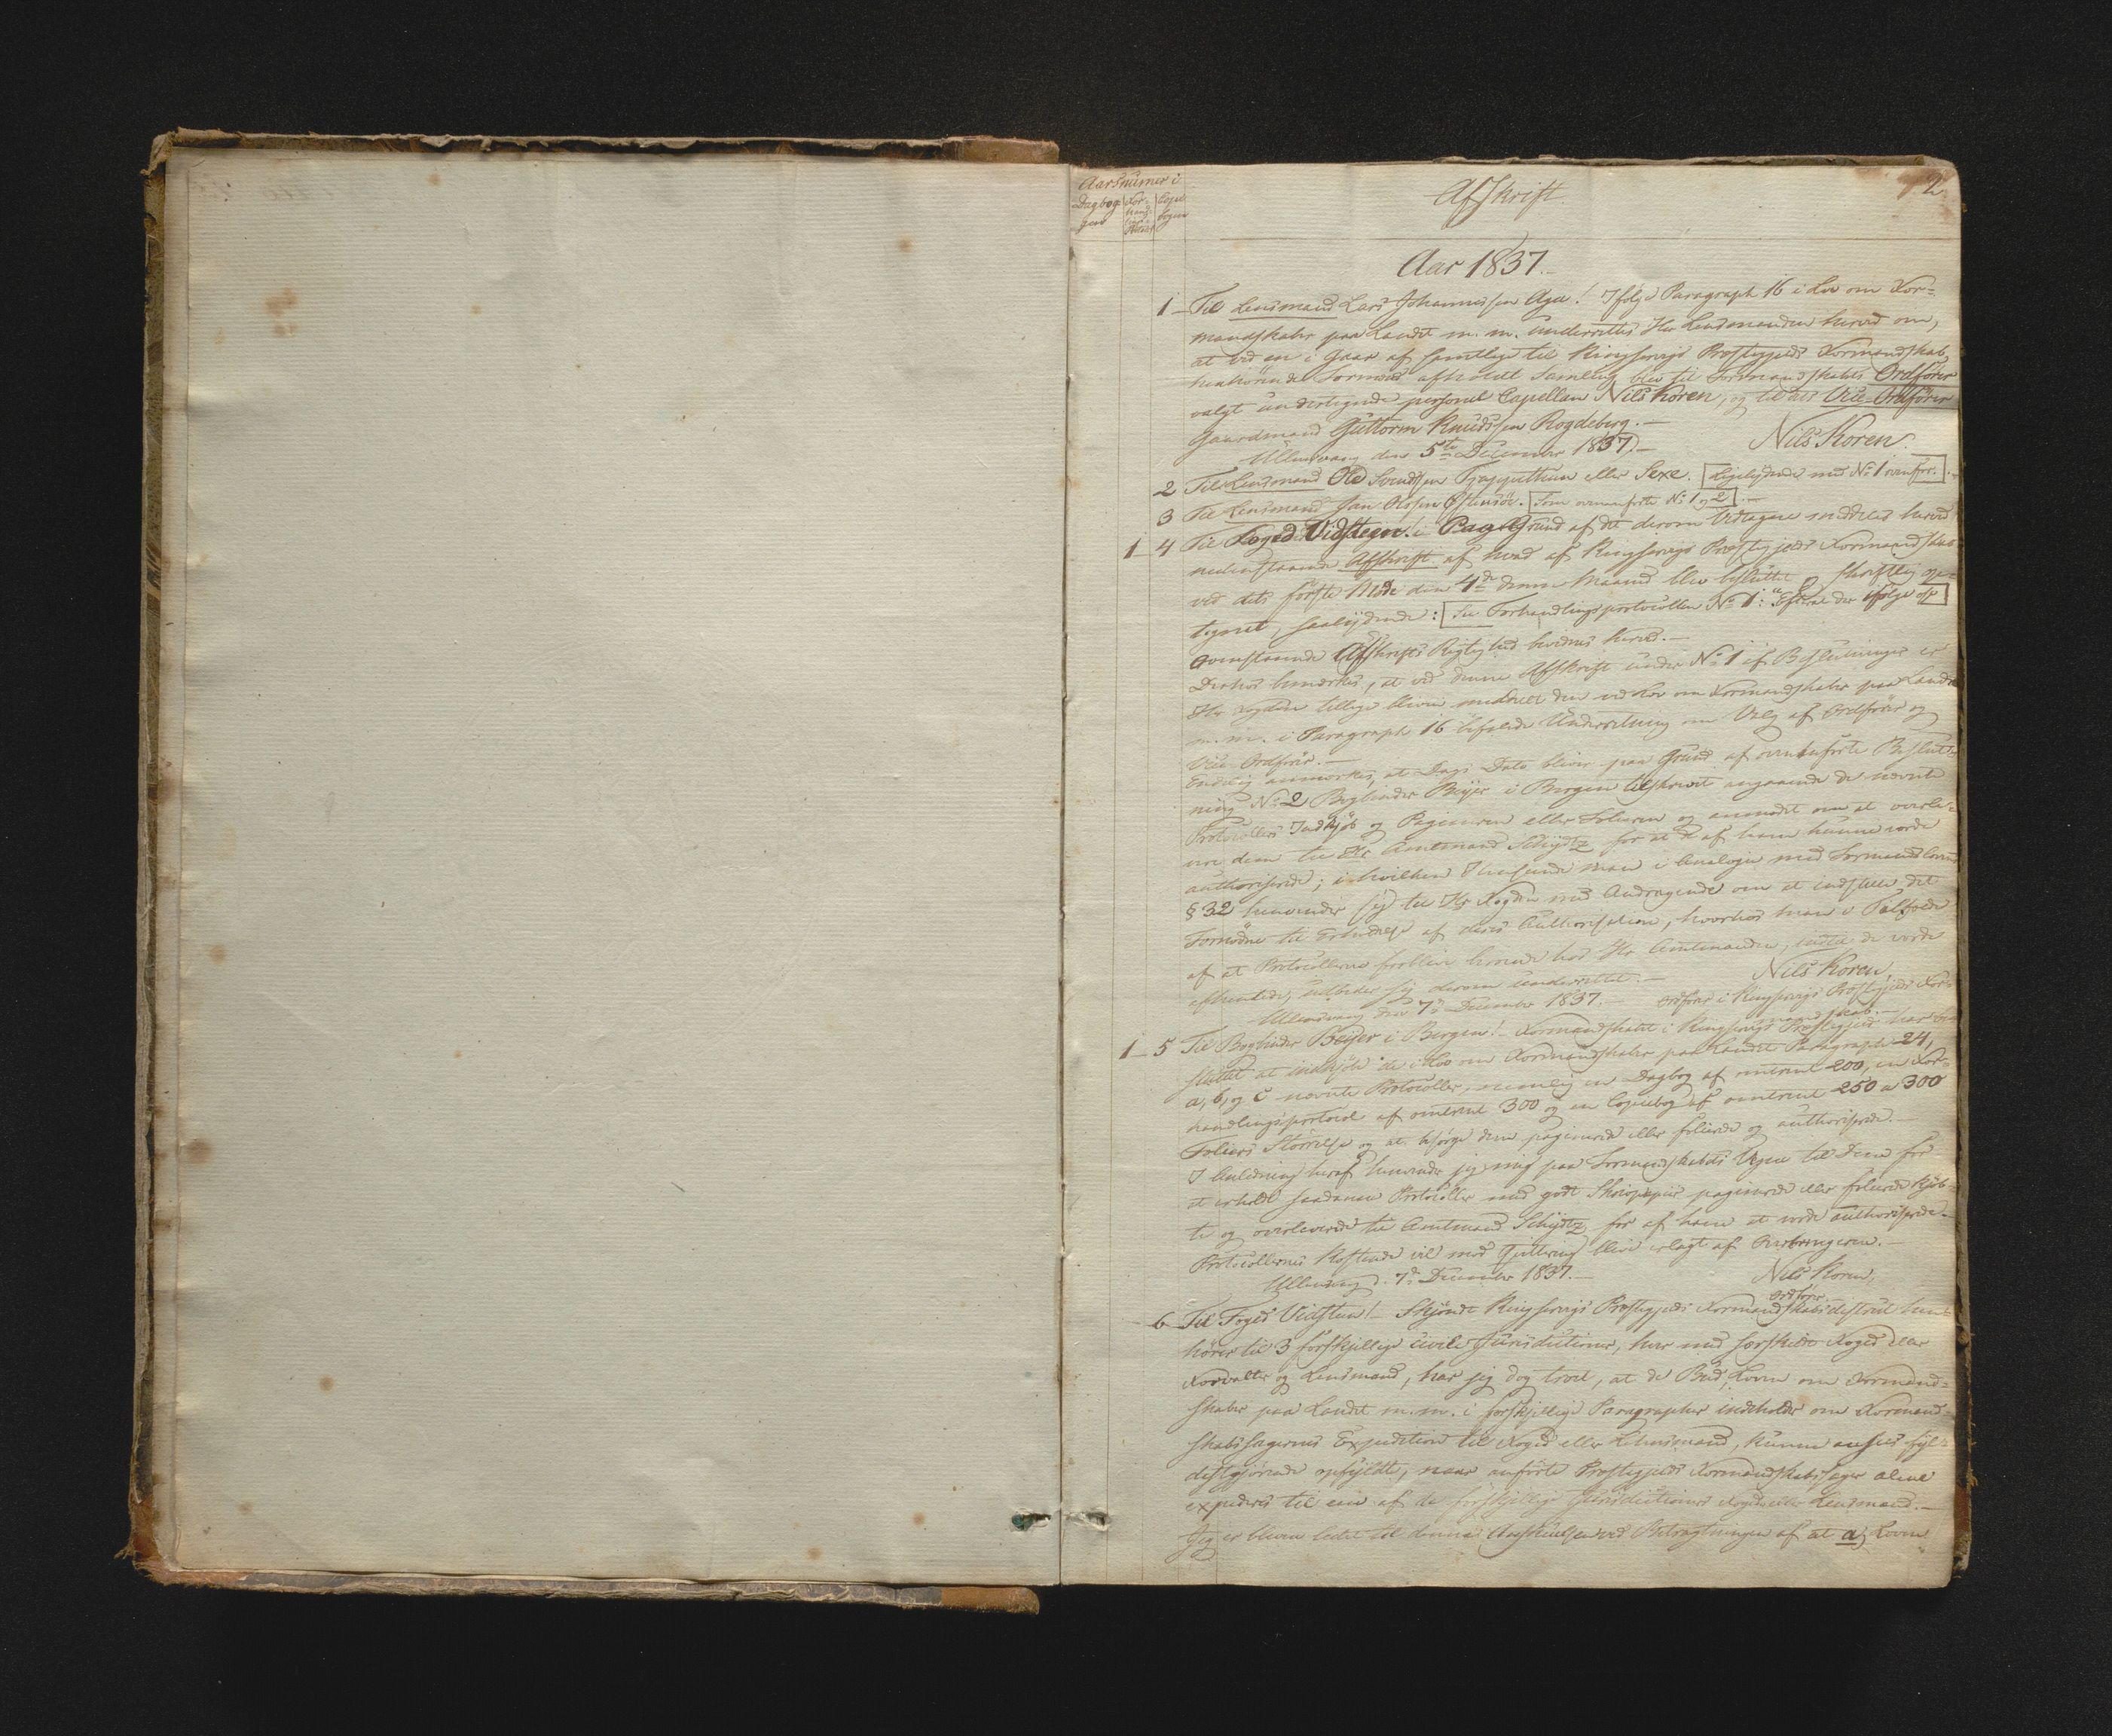 2
Aarsnumer i
Dagbog
gen
For-
hand
Copie
bogen
Afskrift
Aar 1837.
1 Til Lensmand Lars Johannessen Aga! Ifølge Paragraph 16 i Lov om For-
mandskaber paa Landet m. m. underrettes Hr Lensmanden herved om,
at ved en i Gaar af samtlige til Kingservigs Præstegjelds Formandskab
henhørende Formænd afholdt Samling blev til Formandskabets Ordfører
valgt undertegnede personel Capellan Nils Koren, og til dets Vice-Ordfører
Gaardmand Guttorm Knudssen Rogdeberg.
Ullensvang den 5te December 1837.
Nils Koren.
2 Til Lensmand Ole Svendsen eller Sexe. Ligelydende med No 1 ovenfor.
3 Til Lensmand Jan Olssen Østensøe. Som ovenanførte No 1 og 2.
1 4 Til Foged Vidsteen. Paa Grund af det derom Vedtagne meddeles herved
nedenstaaende Afskrift af hvad af Kingservigs Præstegjelds Formandskab
ved dets første Møde den 4de denne Maaned blev besluttet og skriftlig op-
tegnet, saalydende: See Forhandlingsprotocollen No 1: "Efterat der ifølge osv
Ovenstaaende Afskrifts Rigtighed bevidnes herved.
Derhos bemærkes, at ved denne Afskrift under No 1 af Beslutninger er
Hr Fogden tillige bleven meddeelt den ved Lov om Formandskaber paa Landet
m. m. i Paragraph 16 befalede Underretning om Valg af Ordfører og
Vice-Ordfører.
Endelig anmærkes, at Dags Dato bliver paa Grund af ovenanførte Beslut-
ning No 2 Bogbinder Beyer i Bergen tilskrevet angaaende de nævnte
Protocollers Indkjøb og Pagineren eller Folieren og anmodet om at overle-
vere dem til Hr Amtmand Schydtz for at de af ham kunne vorde
authoriserede; i hvilken Henseende man i Analogie med Formandsloven
§ 32 henvender sig til Hr Fogden med Andragende om at indstille det
Fornødne til Erholdelse af deres Authorisation, hvorhos man i Tilfælde
af at Protocollerne forblive beroende hos Hr Amtmanden, indtil de vorde
afhentede, udbeder sig derom underrettet.
Ullensvang den 7de December 1837.
Nils Koren,
Ordfører i Kingservigs Præstegjelds For-
mandskab.
1 5 Til Bogbinder Beyer i Bergen! Formandskabet i Kingservigs Præstegjeld har be-
sluttet at indkjøbe de i Lov om Formandskaber paa Landet Paragraph 24,
a, b, og c nævnte Protocoller, nemlig en Dagbog af omtrent 200, en For-
handlingsprotocol af omtrent 300 og en Copiebog af omtrent 250 a 300
Foliers Størrelse og at besørge dem paginerede eller folierede og authoriserede.
I Anledning heraf henvender jeg mig paa Formandskabets Vegne til Dem for
at erholde saadanne Protocoller med godt Skrivpapiir paginerede eller folierede kjøb-
te og overleverede til Amtmand Schydtz for af ham at vorde authoriserede.
Protocollernes Kostende vil mod Qvittering blive erlagt af Overbringeren.
Ullensvang d. 7de December 1837.
Nils Koren,
Ordfører.
6 Til Foged Vidsteen! Skjøndt Kingservigs Præstegjelds Formandskabsdistrict hen-
hører til 3 forskjellige civile Jurisdictioner, hver med særskilt Foged eller
Forvalter og Lensmand, har jeg dog troet, at de Bud, Loven om Formand-
skaber paa Landet m. m. i forskjellige Paragrapher indeholder om Formand-
skabssagernes Expedition til Foged eller Lensmand, kunne ansees fyl-
destgjørende opfyldte, naar anførte Præstegjelds Formandskabssager alene
expederes til een af de forskjellige Jurisdictioners Foged eller Lensmand.
Jeg er bleven ledet til denne Anskuelse ved Betragtningen af at a) Loven